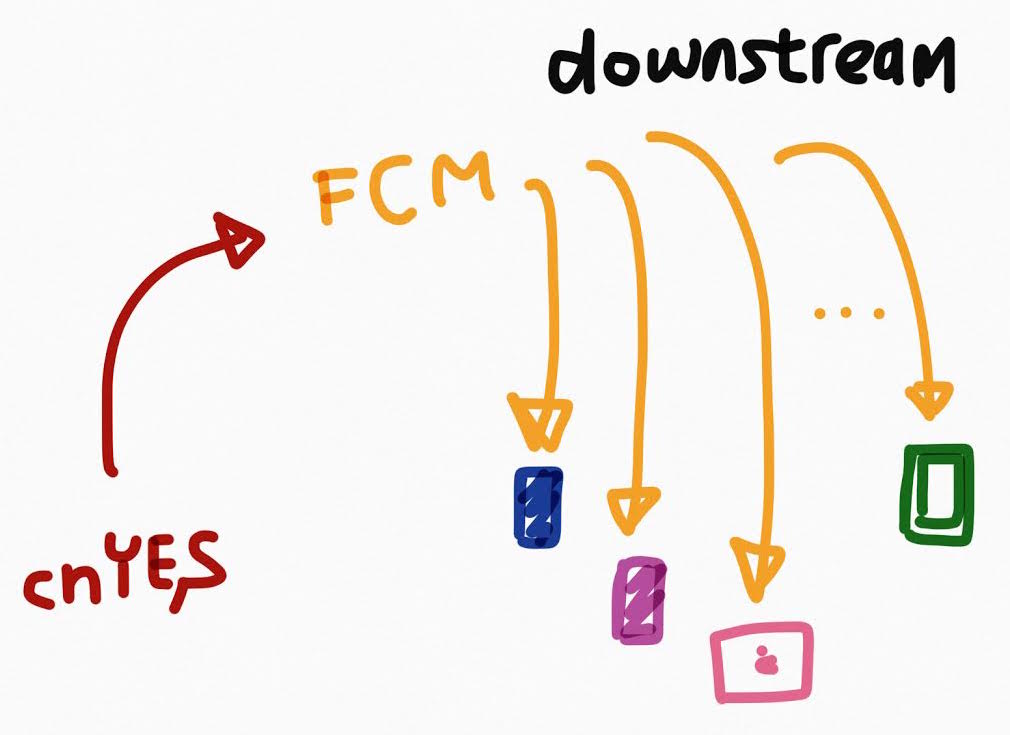 downstream
FCM
...
cnYES